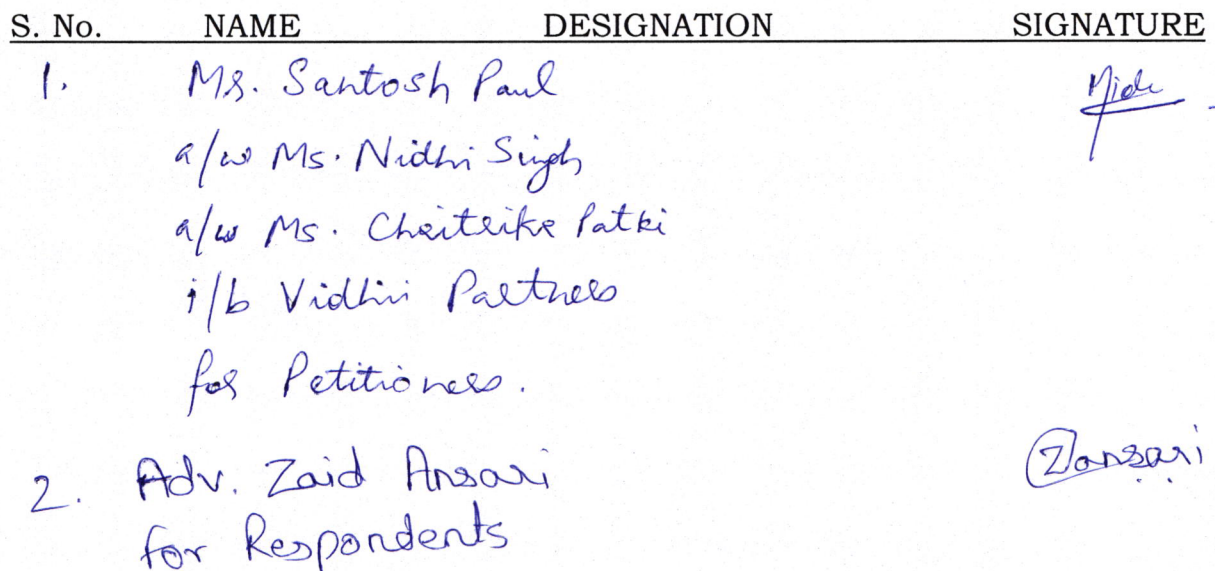 S. No. NAME DESIGNATION SIGNATURE
1. Mr. Santosh Paul
a/w Ms. Nidhi Singh
a/w Ms. Chaitrika Patki
i/b Vidhii Partners
for Petitioners.
2. Adv. Zaid Ansari Zansari
for Respondents